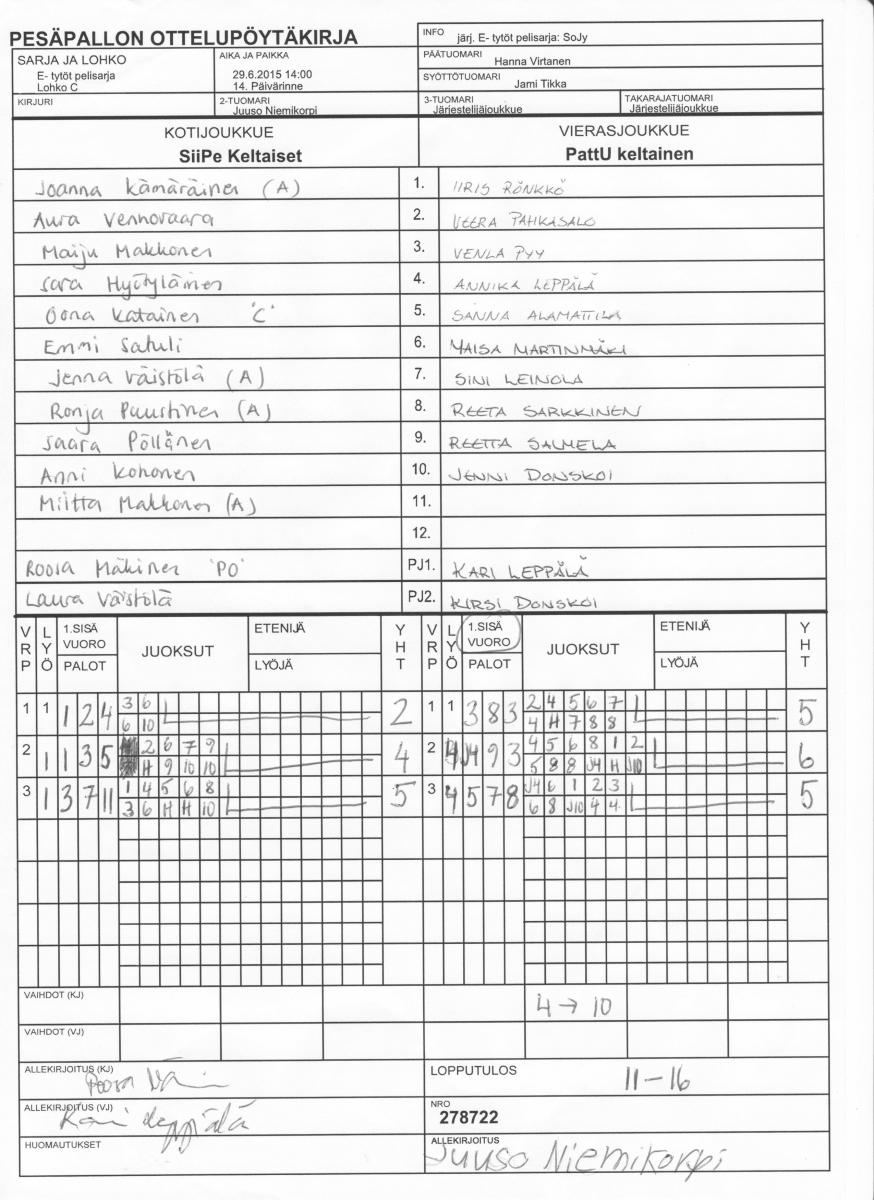 PESÄPALLON OTTELUPÖYTÄKIRJA
INFO järj. E- tytöt pelisarja: SoJy
SARJA JA LOHKO
E- tytöt pelisarja
Lohko C
AIKA JA PAIKKA
29.6.2015 14:00
14. Päivärinne
PÄÄTUOMARI
Hanna Virtanen
SYÖTTÖTUOMARI
Jami Tikka
KIRJURI
2-TUOMARI
Juuso Niemikorpi
3-TUOMARI
Järjestelijäjoukkue
TAKARAJATUOMARI
Järjestelijäjoukkue
KOTIJOUKKUE
SiiPe Keltaiset
VIERASJOUKKUE
PattU keltainen
Joanna Kämäräinen (A) 1. IIRIS RÖNKKÖ
Aura Vennovaara 2. VEERA PAHKASALO
Maiju Makkonen 3. VENLA PYY
Sara Hyötyläinen 4. ANNIKA LEPPÄLÄ
Oona Katainen 'C' 5. SANNA ALAMATTILA
Emmi Satuli 6. MAISA MARTINMÄKI
Jenna Väistölä (A) 7. SINI LEINOLA
Ronja Puustinen (A) 8. REETA SARKKINEN
Saara Pöllänen 9. REETTA SALMELA
Anni Kohonen 10. JENNI DONSKOI
Miitta Makkonen (A) 11.
12.
Roosa Mäkinen 'PO' PJ1. KARI LEPPÄLÄ
Laura Väistölä PJ2. KIRSI DONSKOI
VRP LYÖ 1.SISÄ VUORO PALOT JUOKSUT ETENIJÄ LYÖJÄ YHT VRP LYÖ 1.SISÄ VUORO PALOT JUOKSUT ETENIJÄ LYÖJÄ YHT
1 1 1 2 4 3 6 2 1 1 3 8 3 2 4 5 6 7 5
6 10 4 H 7 8 8
2 1 1 3 5 2 6 7 9 4 2 4 J4 9 3 4 5 6 8 1 2 6
H 9 10 10 5 8 8 J4 H J10
3 1 3 7 11 1 4 5 6 8 5 3 4 5 7 8 J4 6 1 2 3 5
3 6 H H 10 6 8 J10 4 4
VAIHDOT (KJ) 4 → 10
VAIHDOT (VJ)
ALLEKIRJOITUS (KJ)
LOPPUTULOS 11-16
ALLEKIRJOITUS (VJ) Kari Leppälä
NRO
278722
HUOMAUTUKSET
ALLEKIRJOITUS
Juuso Niemikorpi